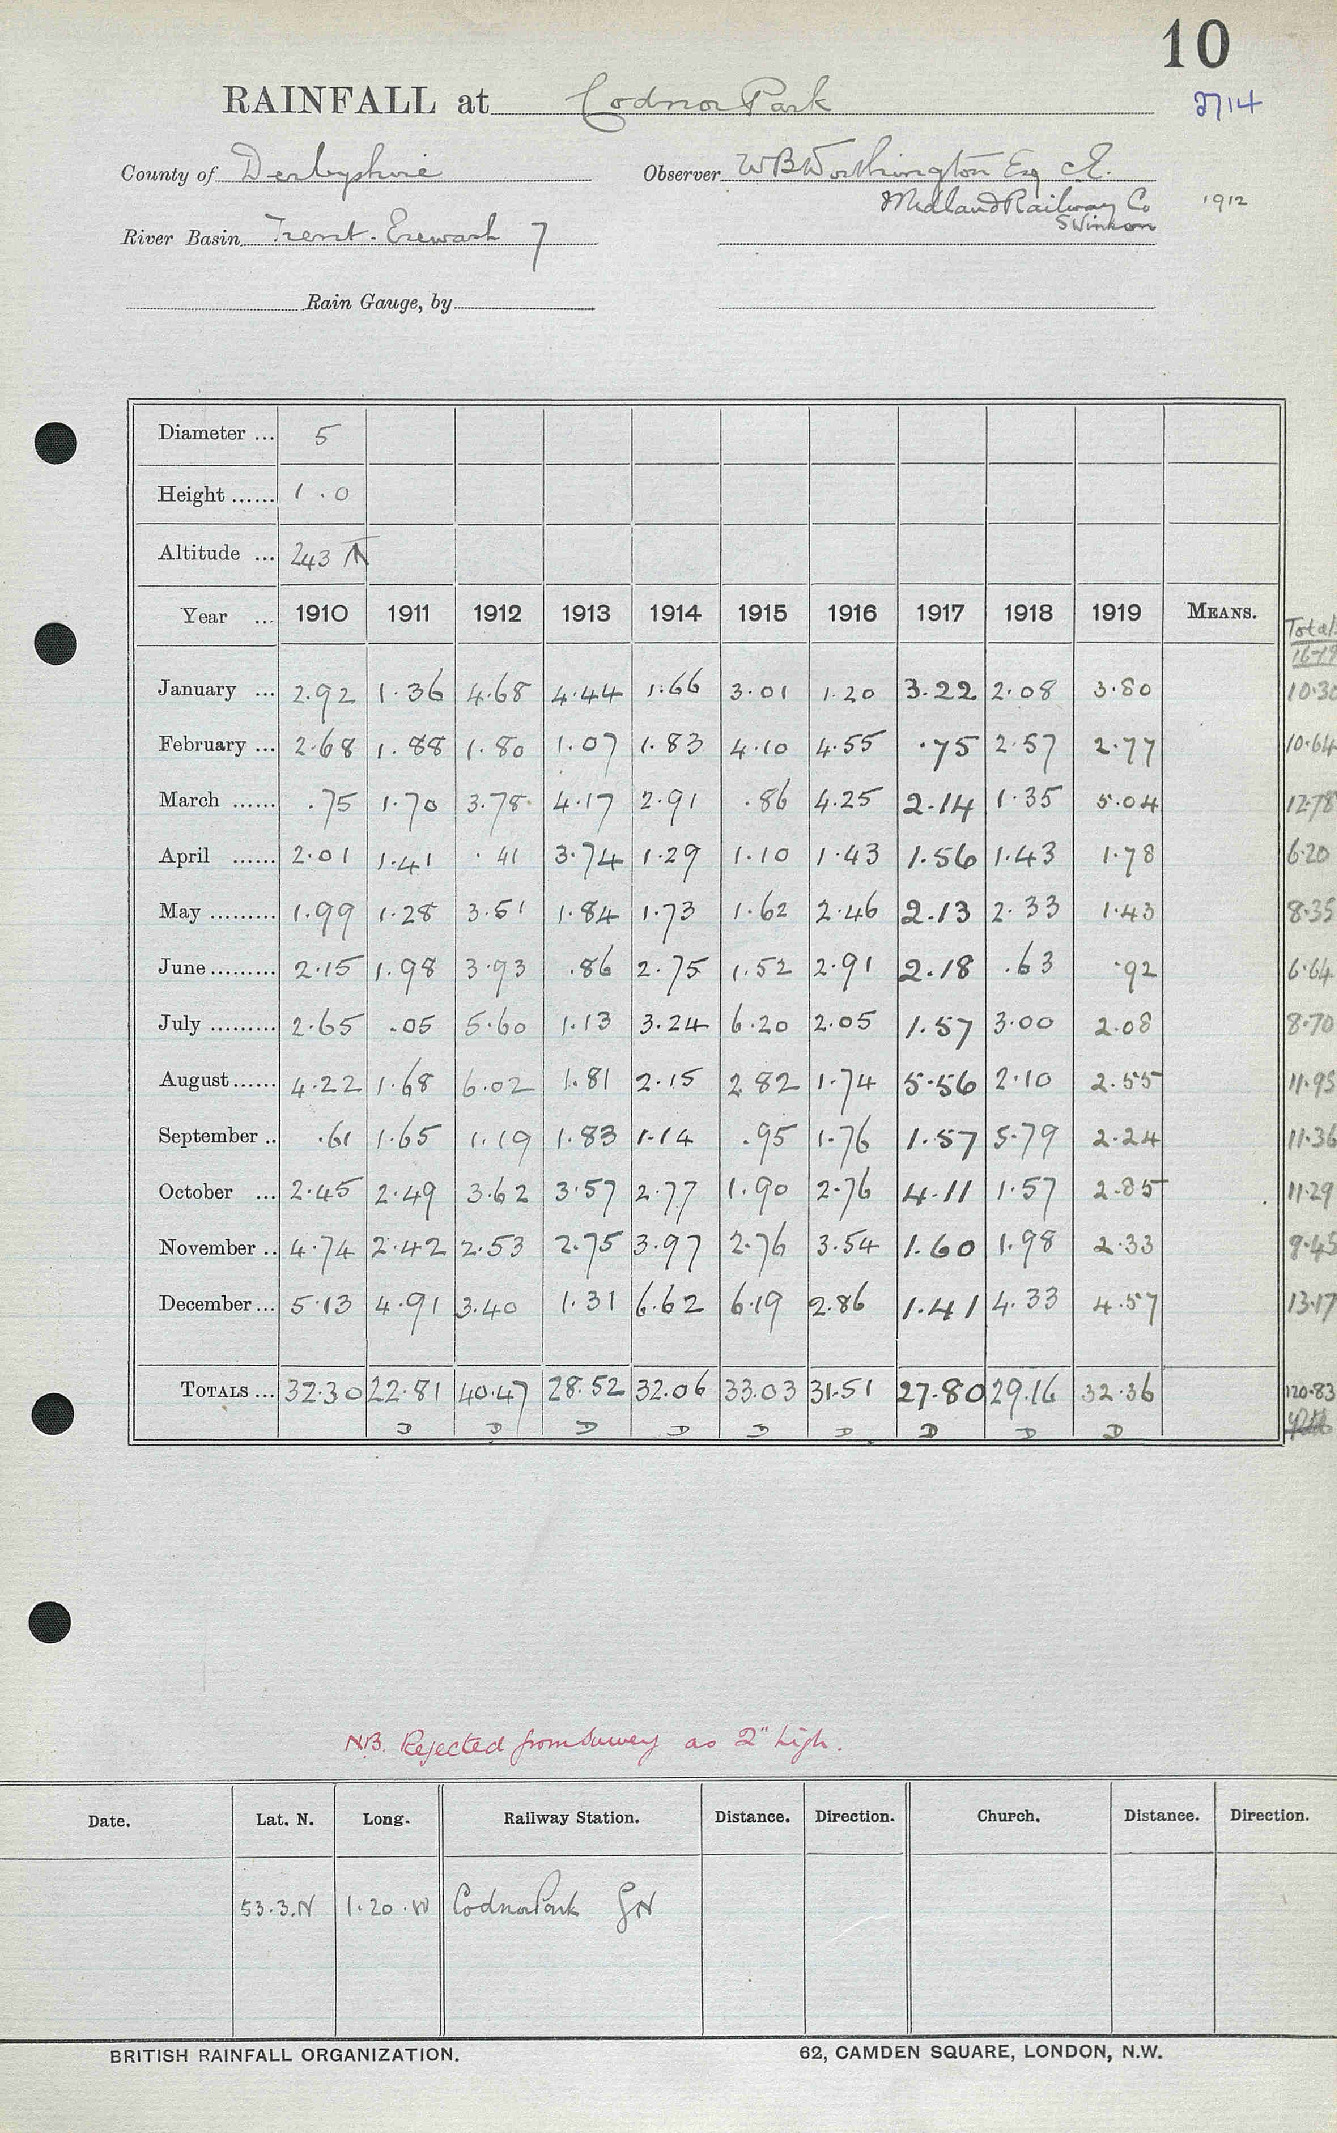 10
RAINFALL at Codnor Park
2714
County of Derbyshire Observer W B Worthington Esq C.E.
Midland Railway Co 1912
River Basin Trent. Erewash 7
Rain Gauge, by
Diameter ... 5
Height ...... 1.0
Altitude ... 243
Year ... 1910 1911 1912 1913 1914 1915 1916 1917 1918 1919 MEANS. Total
16-19
January ... 2.92 1.36 4.68 4.44 1.66 3.01 1.20 3.22 2.08 3.80 10.30
February ... 2.68 1.88 1.80 1.07 1.83 4.10 4.55 .75 2.57 2.77 10.64
March ...... .75 1.70 3.78 4.17 2.91 .86 4.25 2.14 1.35 5.04 12.78
April ...... 2.01 1.41 .41 3.74 1.29 1.10 1.43 1.56 1.43 1.78 6.20
May ......... 1.99 1.28 3.51 1.84 1.73 1.62 2.46 2.13 2.33 1.43 8.35
June ......... 2.15 1.98 3.93 .86 2.75 1.52 2.91 2.18 .63 .92 6.64
July ......... 2.65 .05 5.60 1.13 3.24 6.20 2.05 1.57 3.00 2.08 8.70
August ...... 4.22 1.68 6.02 1.81 2.15 2 82 1.74 5.56 2.10 2.55 11.95
September .. .61 1.65 1.19 1.83 1.14 .95 1.76 1.57 5.79 2.24 11.36
October ... 2.45 2.49 3.62 3.57 2.77 1.90 2.76 4.11 1.57 2.85 11.29
November .. 4.74 2.42 2.53 2.75 3.97 2.76 3.54 1.60 1.98 2.33 9.45
December ... 5.13 4.91 3.40 1.31 6.62 6.19 2.86 1.41 4.33 4.57 13.17
TOTALS ... 32.30 22.81 40.47 28.52 32.06 33.03 31.51 27.80 29.16 32.36 120.83
D D D D D D D D D
NB. Rejected from Survey as 2" high.
Date. Lat. N. Long. Railway Station. Distance. Direction. Church. Distance. Direction.
53.3.N 1.20.W Codnor Park GN
BRITISH RAINFALL ORGANIZATION. 62, CAMDEN SQUARE, LONDON, N.W.